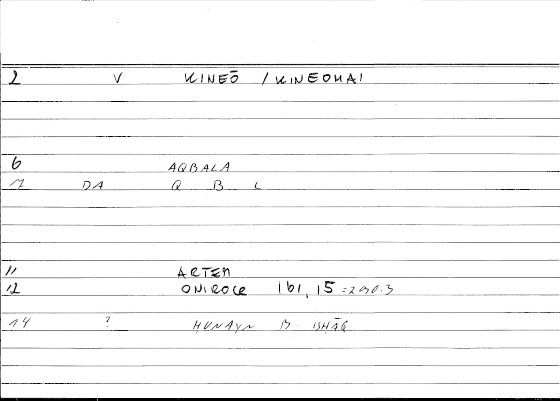 2 V KINEŌ / KINEOMAI
6 AQBALA
7 DA Q B L
11 ARTEM
12 ONIROCR 161, 15 = 290.3
14 ? HUNAYN B ISHĀQ